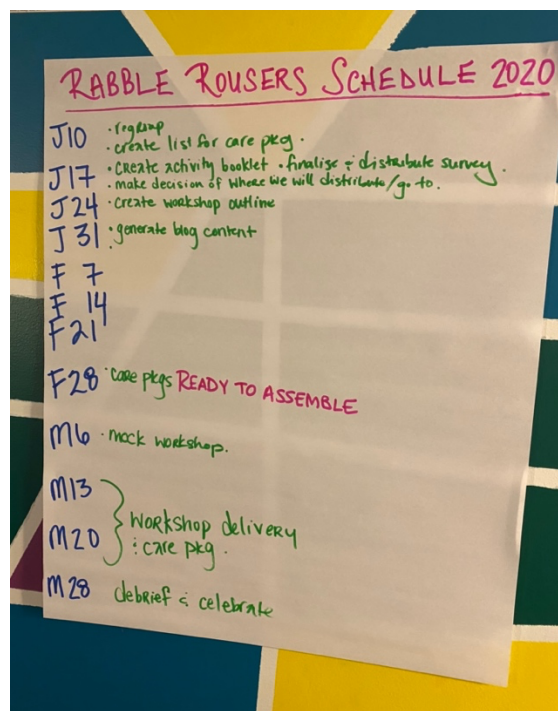 RABBLE ROUSERS SCHEDULE 2020
J10 · regroup
· create list for care pkg.
J17 · create activity booklet · finalise & distribute survey.
· make decision of where we will distribute/go to.
J24 · create workshop outline
J31 · generate blog content
F 7
F 14
F 21
F28 · care pkgs READY TO ASSEMBLE
M6 · mock workshop.
M13
WORKSHOP delivery
M20 & care pkg.
M28 debrief & celebrate